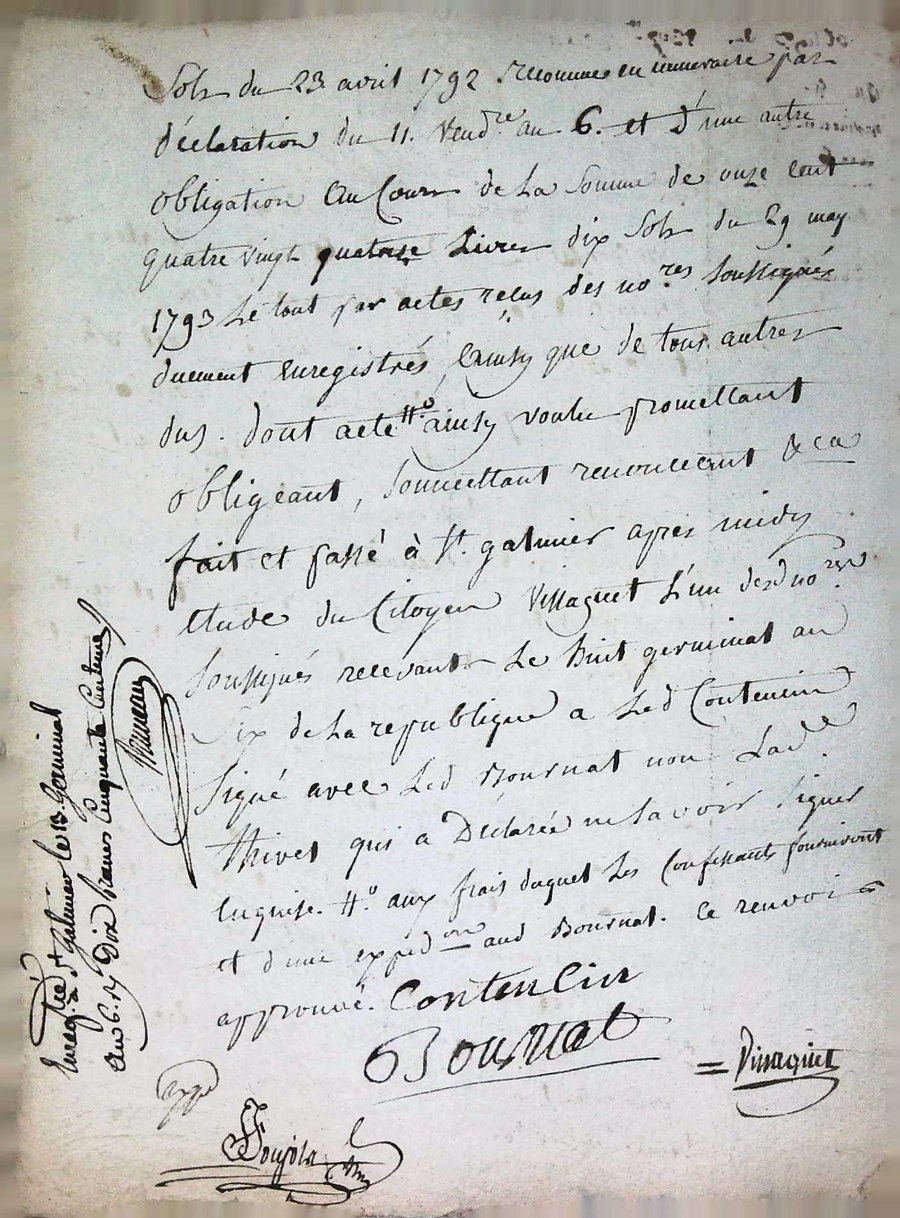 Sols du 23 avril 1792 reconnue en numeraire par
déclaration du 11. Vendre an 6. et d'une autre
obligation au Cours de La Somme de onze cent
quatre vingt quatorze Livres dix Sols du 29 may
1793 Le tout par actes reçus des nores Soussignés
duement enregistrés, ainsy que de tous autres
dus. dont acte #o ainsy voulu promettant
obligeant, soumettant renonceant &ca
fait et passé à St. galmier apres midy
Etude du Citoyen Villaguet L'un desd nores
Soussignés recevant Le huit germinal an
Six de La republique a Led Contencin
Signé avec Led Bournat non Lade
thivet qui a Déclarée ne Savoir Signer
Enquise. #o aux frais duquel Les Confessants fourniront
et d'une expedon aud Bournat. Ce renvoi
approuvé. Contencin
Bournat
Enregtré à St Galmier le 13 Germinal
an 6. Dix francs Cinquante Centimes